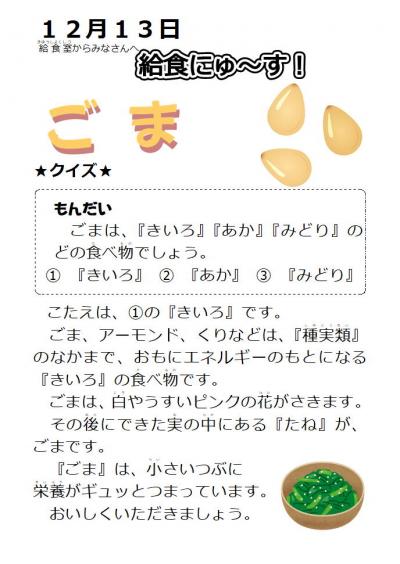 12月13日
給食室からみなさんへ
給食にゅ～す！
ごま
★クイズ★
もんだい
ごまは、『きいろ』『あか』『みどり』の
どの食べ物でしょう。
① 『きいろ』 ② 『あか』 ③ 『みどり』
こたえは、①の『きいろ』です。
ごま、アーモンド、くりなどは、『種実類』
のなかまで、おもにエネルギーのもとになる
『きいろ』の食べ物です。
ごまは、白やうすいピンクの花がさきます。
その後にできた実の中にある『たね』が、
ごまです。
『ごま』は、小さいつぶに
栄養がギュッとつまっています。
おいしくいただきましょう。